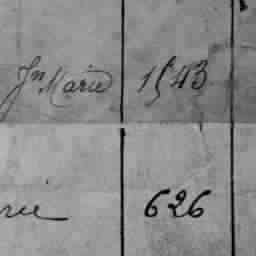 Jn Marie 1543
rie 626